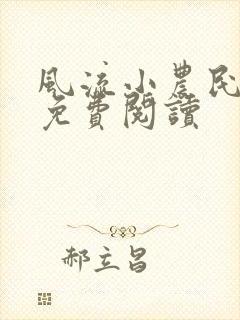 風流小農民
免費閱讀
郝立昌